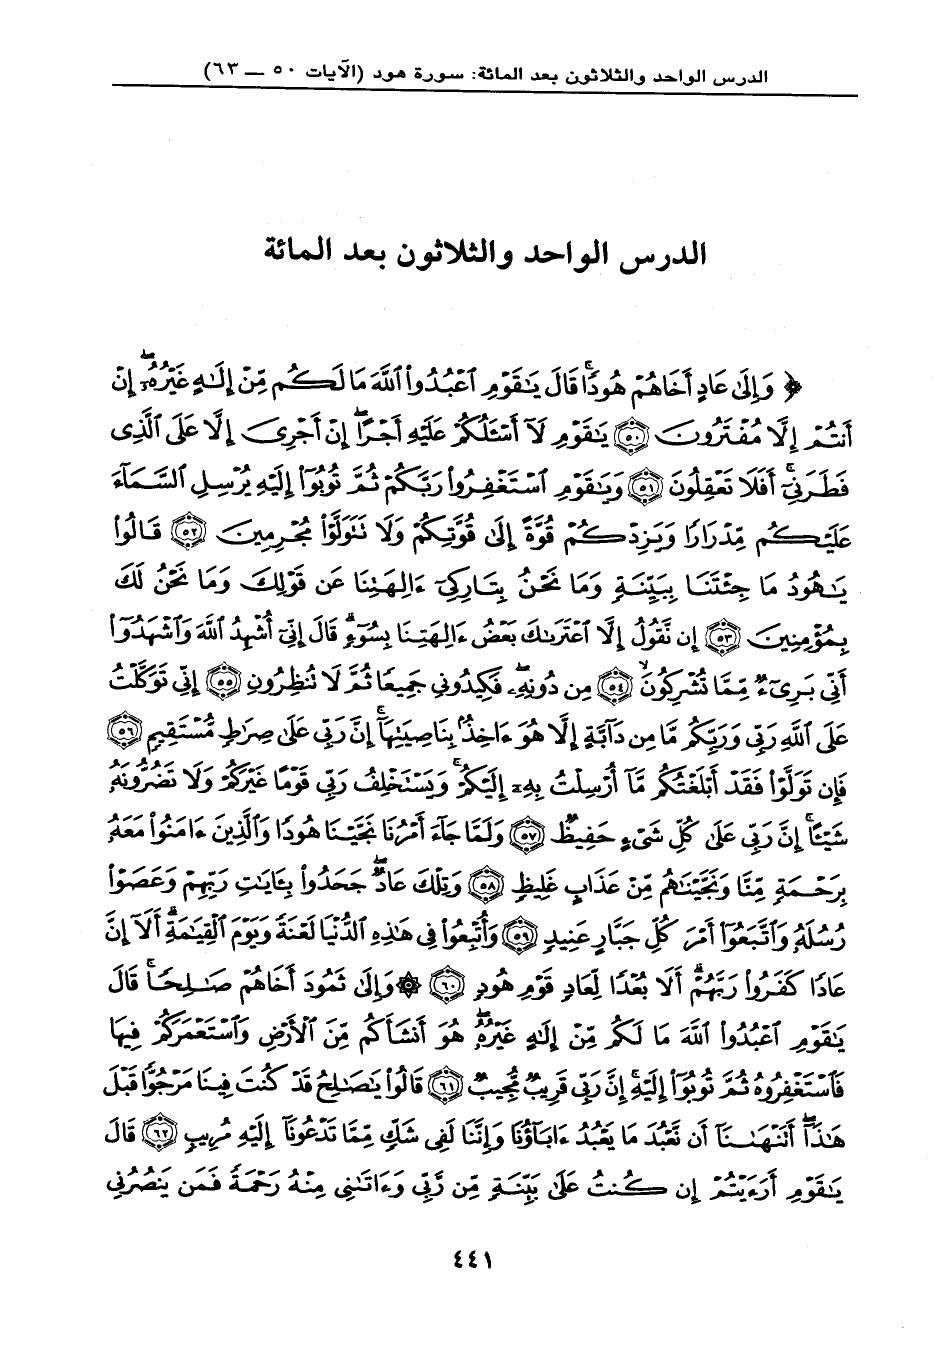 الدرس الواحد والثلاثون بعد المائة: سورة هود (الآيات ٥٠ — ٦٣)
الدرس الواحد والثلاثون بعد المائة
﴿ وَإِلَىٰ عَادٍ أَخَاهُمْ هُودًاۚ قَالَ يَٰقَوْمِ ٱعْبُدُوا۟ ٱللَّهَ مَا لَكُم مِّنْ إِلَٰهٍ غَيْرُهُۥٓۖ إِنْ
أَنتُمْ إِلَّا مُفْتَرُونَ ۝٥٠ يَٰقَوْمِ لَآ أَسْـَٔلُكُمْ عَلَيْهِ أَجْرًاۖ إِنْ أَجْرِىَ إِلَّا عَلَى ٱلَّذِى
فَطَرَنِىٓۚ أَفَلَا تَعْقِلُونَ ۝٥١ وَيَٰقَوْمِ ٱسْتَغْفِرُوا۟ رَبَّكُمْ ثُمَّ تُوبُوٓا۟ إِلَيْهِ يُرْسِلِ ٱلسَّمَآءَ
عَلَيْكُم مِّدْرَارًا وَيَزِدْكُمْ قُوَّةً إِلَىٰ قُوَّتِكُمْ وَلَا تَتَوَلَّوْا۟ مُجْرِمِينَ ۝٥٢ قَالُوا۟
يَٰهُودُ مَا جِئْتَنَا بِبَيِّنَةٍ وَمَا نَحْنُ بِتَارِكِىٓ ءَالِهَتِنَا عَن قَوْلِكَ وَمَا نَحْنُ لَكَ
بِمُؤْمِنِينَ ۝٥٣ إِن نَّقُولُ إِلَّا ٱعْتَرَىٰكَ بَعْضُ ءَالِهَتِنَا بِسُوٓءٍۗ قَالَ إِنِّىٓ أُشْهِدُ ٱللَّهَ وَٱشْهَدُوٓا۟
أَنِّى بَرِىٓءٌ مِّمَّا تُشْرِكُونَۙ ۝٥٤ مِن دُونِهِۦۖ فَكِيدُونِى جَمِيعًا ثُمَّ لَا تُنظِرُونِ ۝٥٥ إِنِّى تَوَكَّلْتُ
عَلَى ٱللَّهِ رَبِّى وَرَبِّكُم مَّا مِن دَآبَّةٍ إِلَّا هُوَ ءَاخِذٌۢ بِنَاصِيَتِهَآۚ إِنَّ رَبِّى عَلَىٰ صِرَٰطٍ مُّسْتَقِيمٍ ۝٥٦
فَإِن تَوَلَّوْا۟ فَقَدْ أَبْلَغْتُكُم مَّآ أُرْسِلْتُ بِهِۦٓ إِلَيْكُمْۚ وَيَسْتَخْلِفُ رَبِّى قَوْمًا غَيْرَكُمْ وَلَا تَضُرُّونَهُۥ
شَيْـًٔاۚ إِنَّ رَبِّى عَلَىٰ كُلِّ شَىْءٍ حَفِيظٌ ۝٥٧ وَلَمَّا جَآءَ أَمْرُنَا نَجَّيْنَا هُودًا وَٱلَّذِينَ ءَامَنُوا۟ مَعَهُۥ
بِرَحْمَةٍ مِّنَّا وَنَجَّيْنَٰهُم مِّنْ عَذَابٍ غَلِيظٍ ۝٥٨ وَتِلْكَ عَادٌۖ جَحَدُوا۟ بِـَٔايَٰتِ رَبِّهِمْ وَعَصَوْا۟
رُسُلَهُۥ وَٱتَّبَعُوٓا۟ أَمْرَ كُلِّ جَبَّارٍ عَنِيدٍ ۝٥٩ وَأُتْبِعُوا۟ فِى هَٰذِهِ ٱلدُّنْيَا لَعْنَةً وَيَوْمَ ٱلْقِيَٰمَةِۗ أَلَآ إِنَّ
عَادًا كَفَرُوا۟ رَبَّهُمْۗ أَلَا بُعْدًا لِّعَادٍ قَوْمِ هُودٍ ۝٦٠ ۞ وَإِلَىٰ ثَمُودَ أَخَاهُمْ صَٰلِحًاۚ قَالَ
يَٰقَوْمِ ٱعْبُدُوا۟ ٱللَّهَ مَا لَكُم مِّنْ إِلَٰهٍ غَيْرُهُۥۖ هُوَ أَنشَأَكُم مِّنَ ٱلْأَرْضِ وَٱسْتَعْمَرَكُمْ فِيهَا
فَٱسْتَغْفِرُوهُ ثُمَّ تُوبُوٓا۟ إِلَيْهِۚ إِنَّ رَبِّى قَرِيبٌ مُّجِيبٌ ۝٦١ قَالُوا۟ يَٰصَٰلِحُ قَدْ كُنتَ فِينَا مَرْجُوًّا قَبْلَ
هَٰذَآۖ أَتَنْهَىٰنَآ أَن نَّعْبُدَ مَا يَعْبُدُ ءَابَآؤُنَا وَإِنَّنَا لَفِى شَكٍّ مِّمَّا تَدْعُونَآ إِلَيْهِ مُرِيبٍ ۝٦٢ قَالَ
يَٰقَوْمِ أَرَءَيْتُمْ إِن كُنتُ عَلَىٰ بَيِّنَةٍ مِّن رَّبِّى وَءَاتَىٰنِى مِنْهُ رَحْمَةً فَمَن يَنصُرُنِى
٤٤١